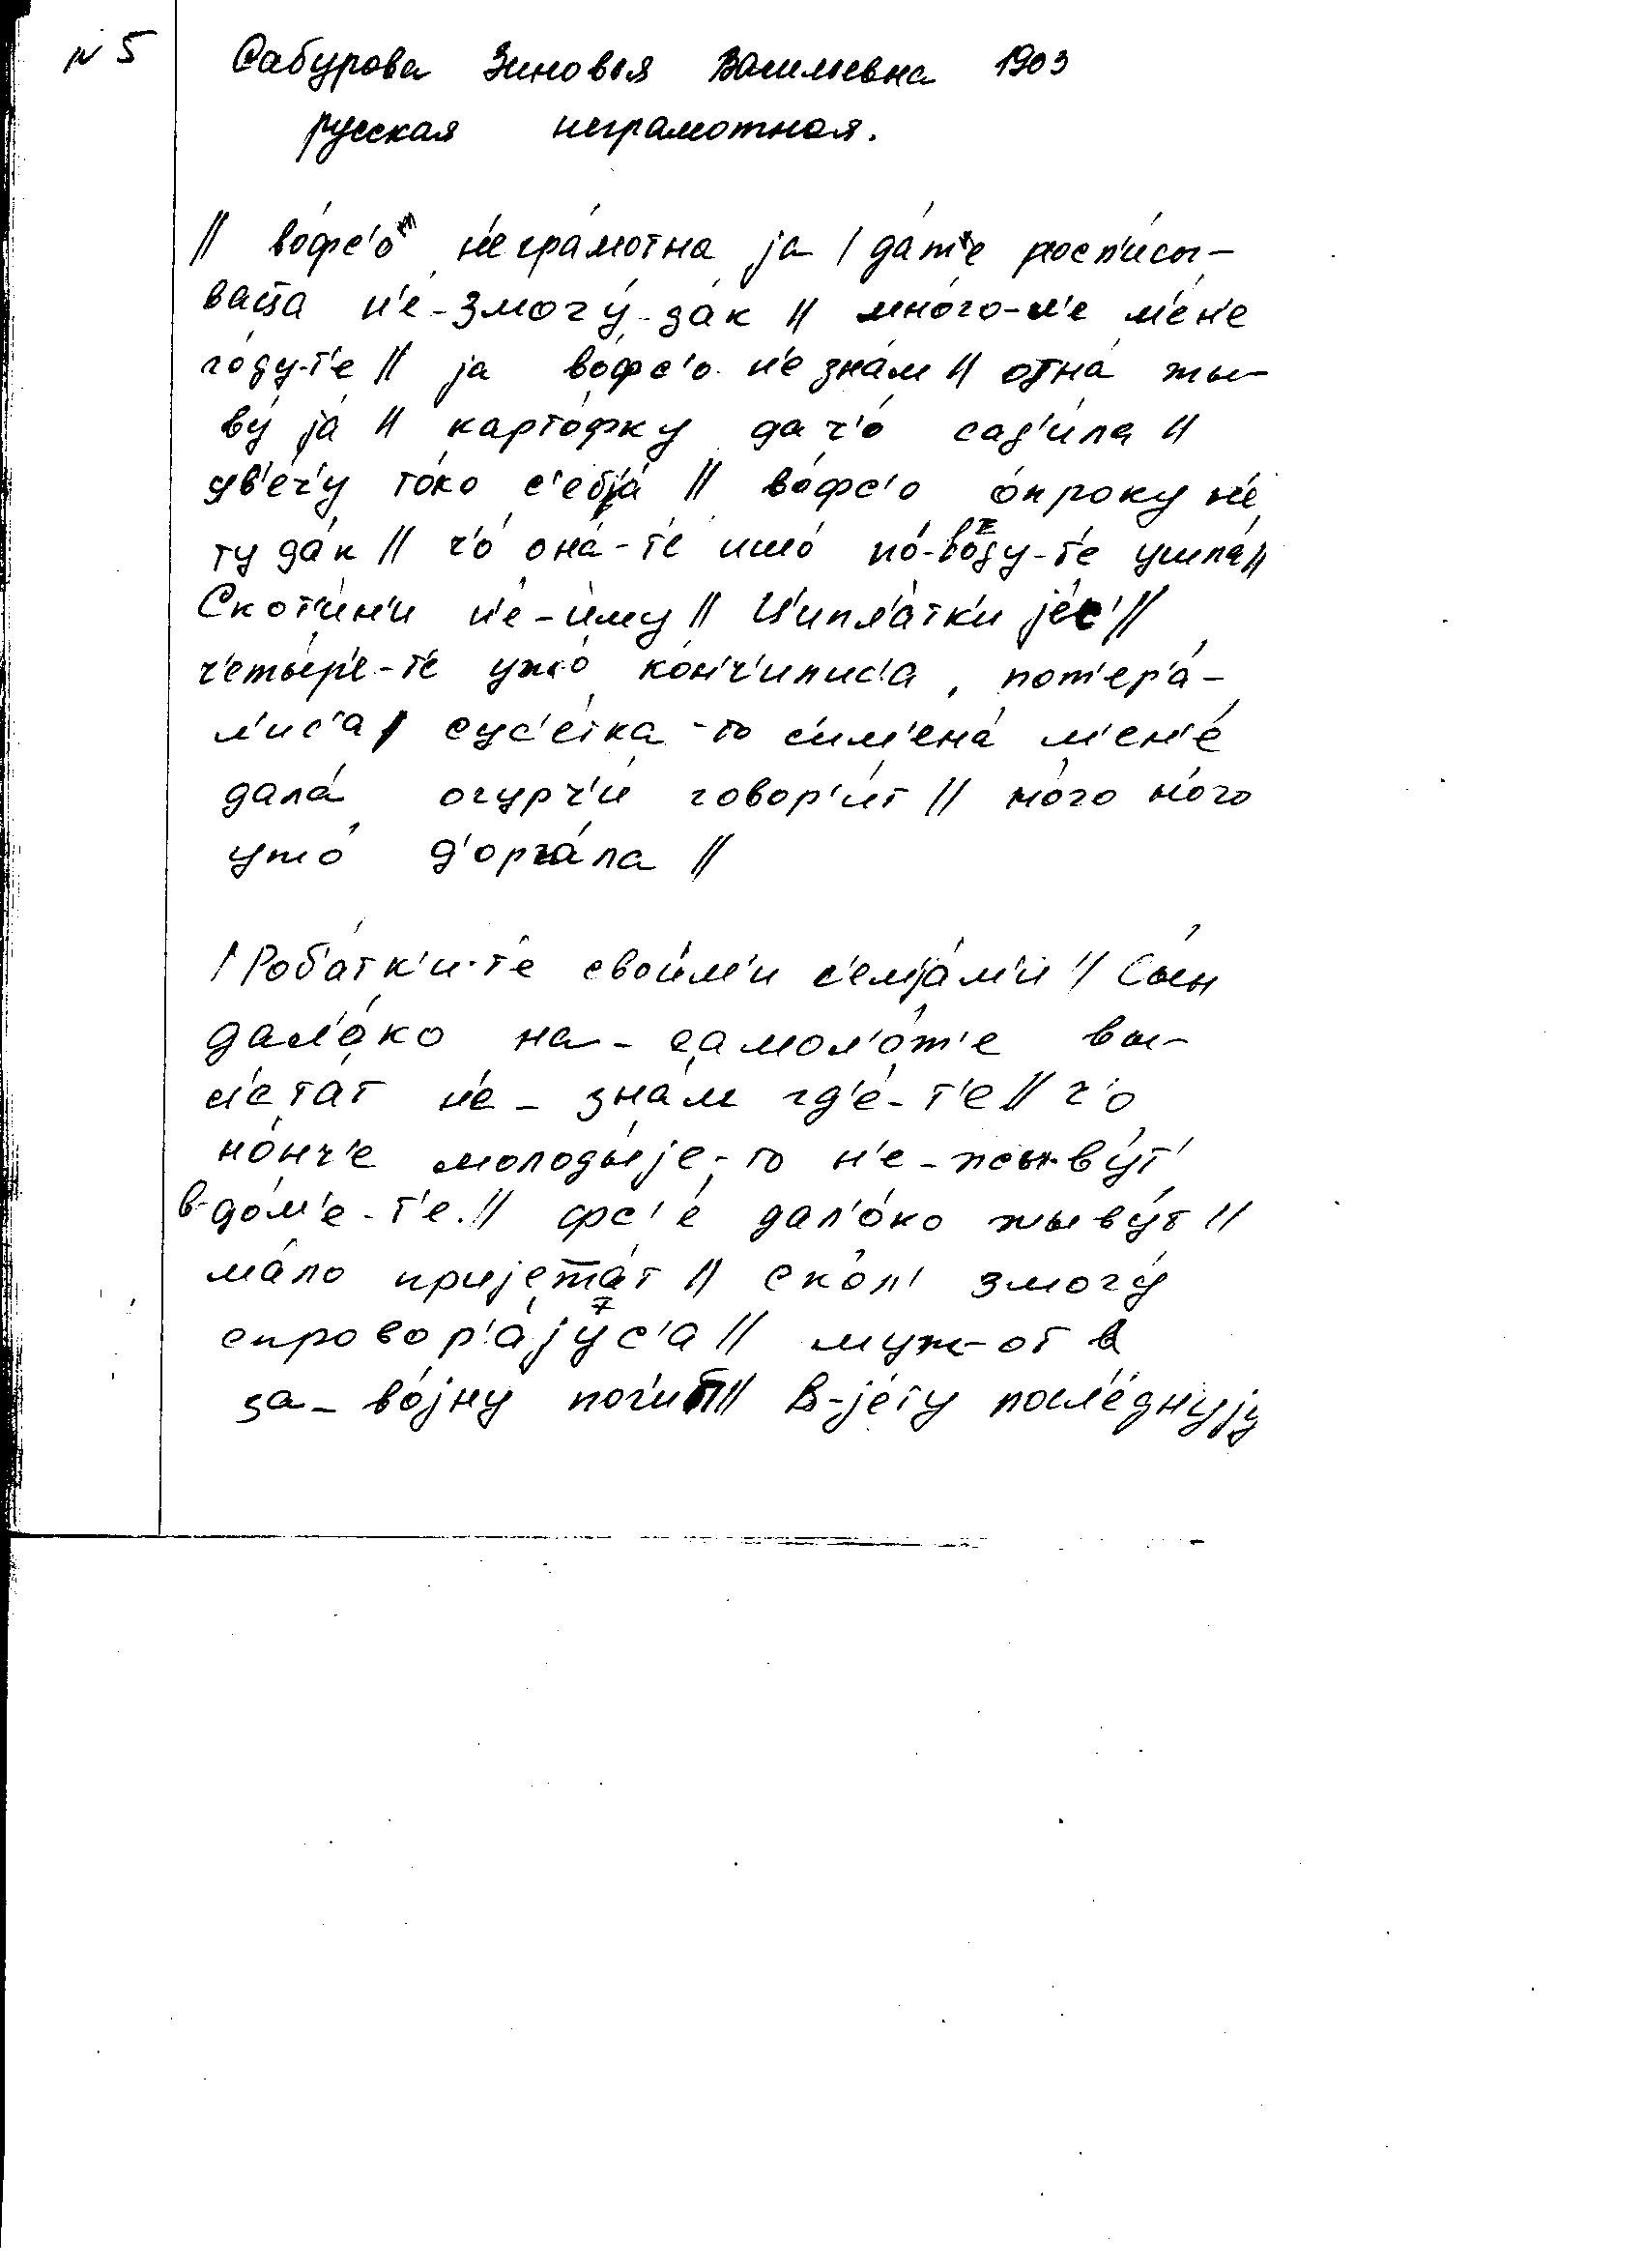 N 5 Сабурова Зиновья Васильевна 1903
русская неграмотная.
// во́фс'о н'егра́мотна ja / да́же росп'и́сы-
ваца н'е-змогу́-да́к // мно́го-л'е м'ен'е
го́ду-т'е // ja во́фс'о н'е зна́м // отна́ жы-
ву́ ја́ // карто́фку да ч'о́ сад'и́ла //
ув'е́ч'у то́ко с'ебја́ // во́фс'о о́проку н'е
ту да́к // ч'о́ она́-т'е ишо́ по́-воду-т'е ушла́ //
Скот'и́н'и н'е-и́му // Ц'ипл'а́тк'и је́с' //
ч'еты́р'е-т'е ужо́ ко́нч'илис'а, пот'ер'а́-
л'ис'а / сус'е́тка-то с'им'ена́ м'ен'е́
дала́ огурч'и́ говор'и́т // но́го но́го
ужо́ д'орга́ла //
/ Роб'а́тк'и-т'е свои́м'и с'емја́м'и // Сы́н
дал'о́ко на-самол'о́т'е вы-
л'ета́т н'е-зна́м гд'е́-т'е // ч'о
но́нч'е молоды́је-то н'е-жыву́т
в-до́м'е-т'е. // фс'е́ дал'о́ко жыву́т //
ма́ло пријежа́т // ско́л' змогу́
спровор'а́јус'а // муж-от
за-во́јну поги́б // В-је́ту после́днују